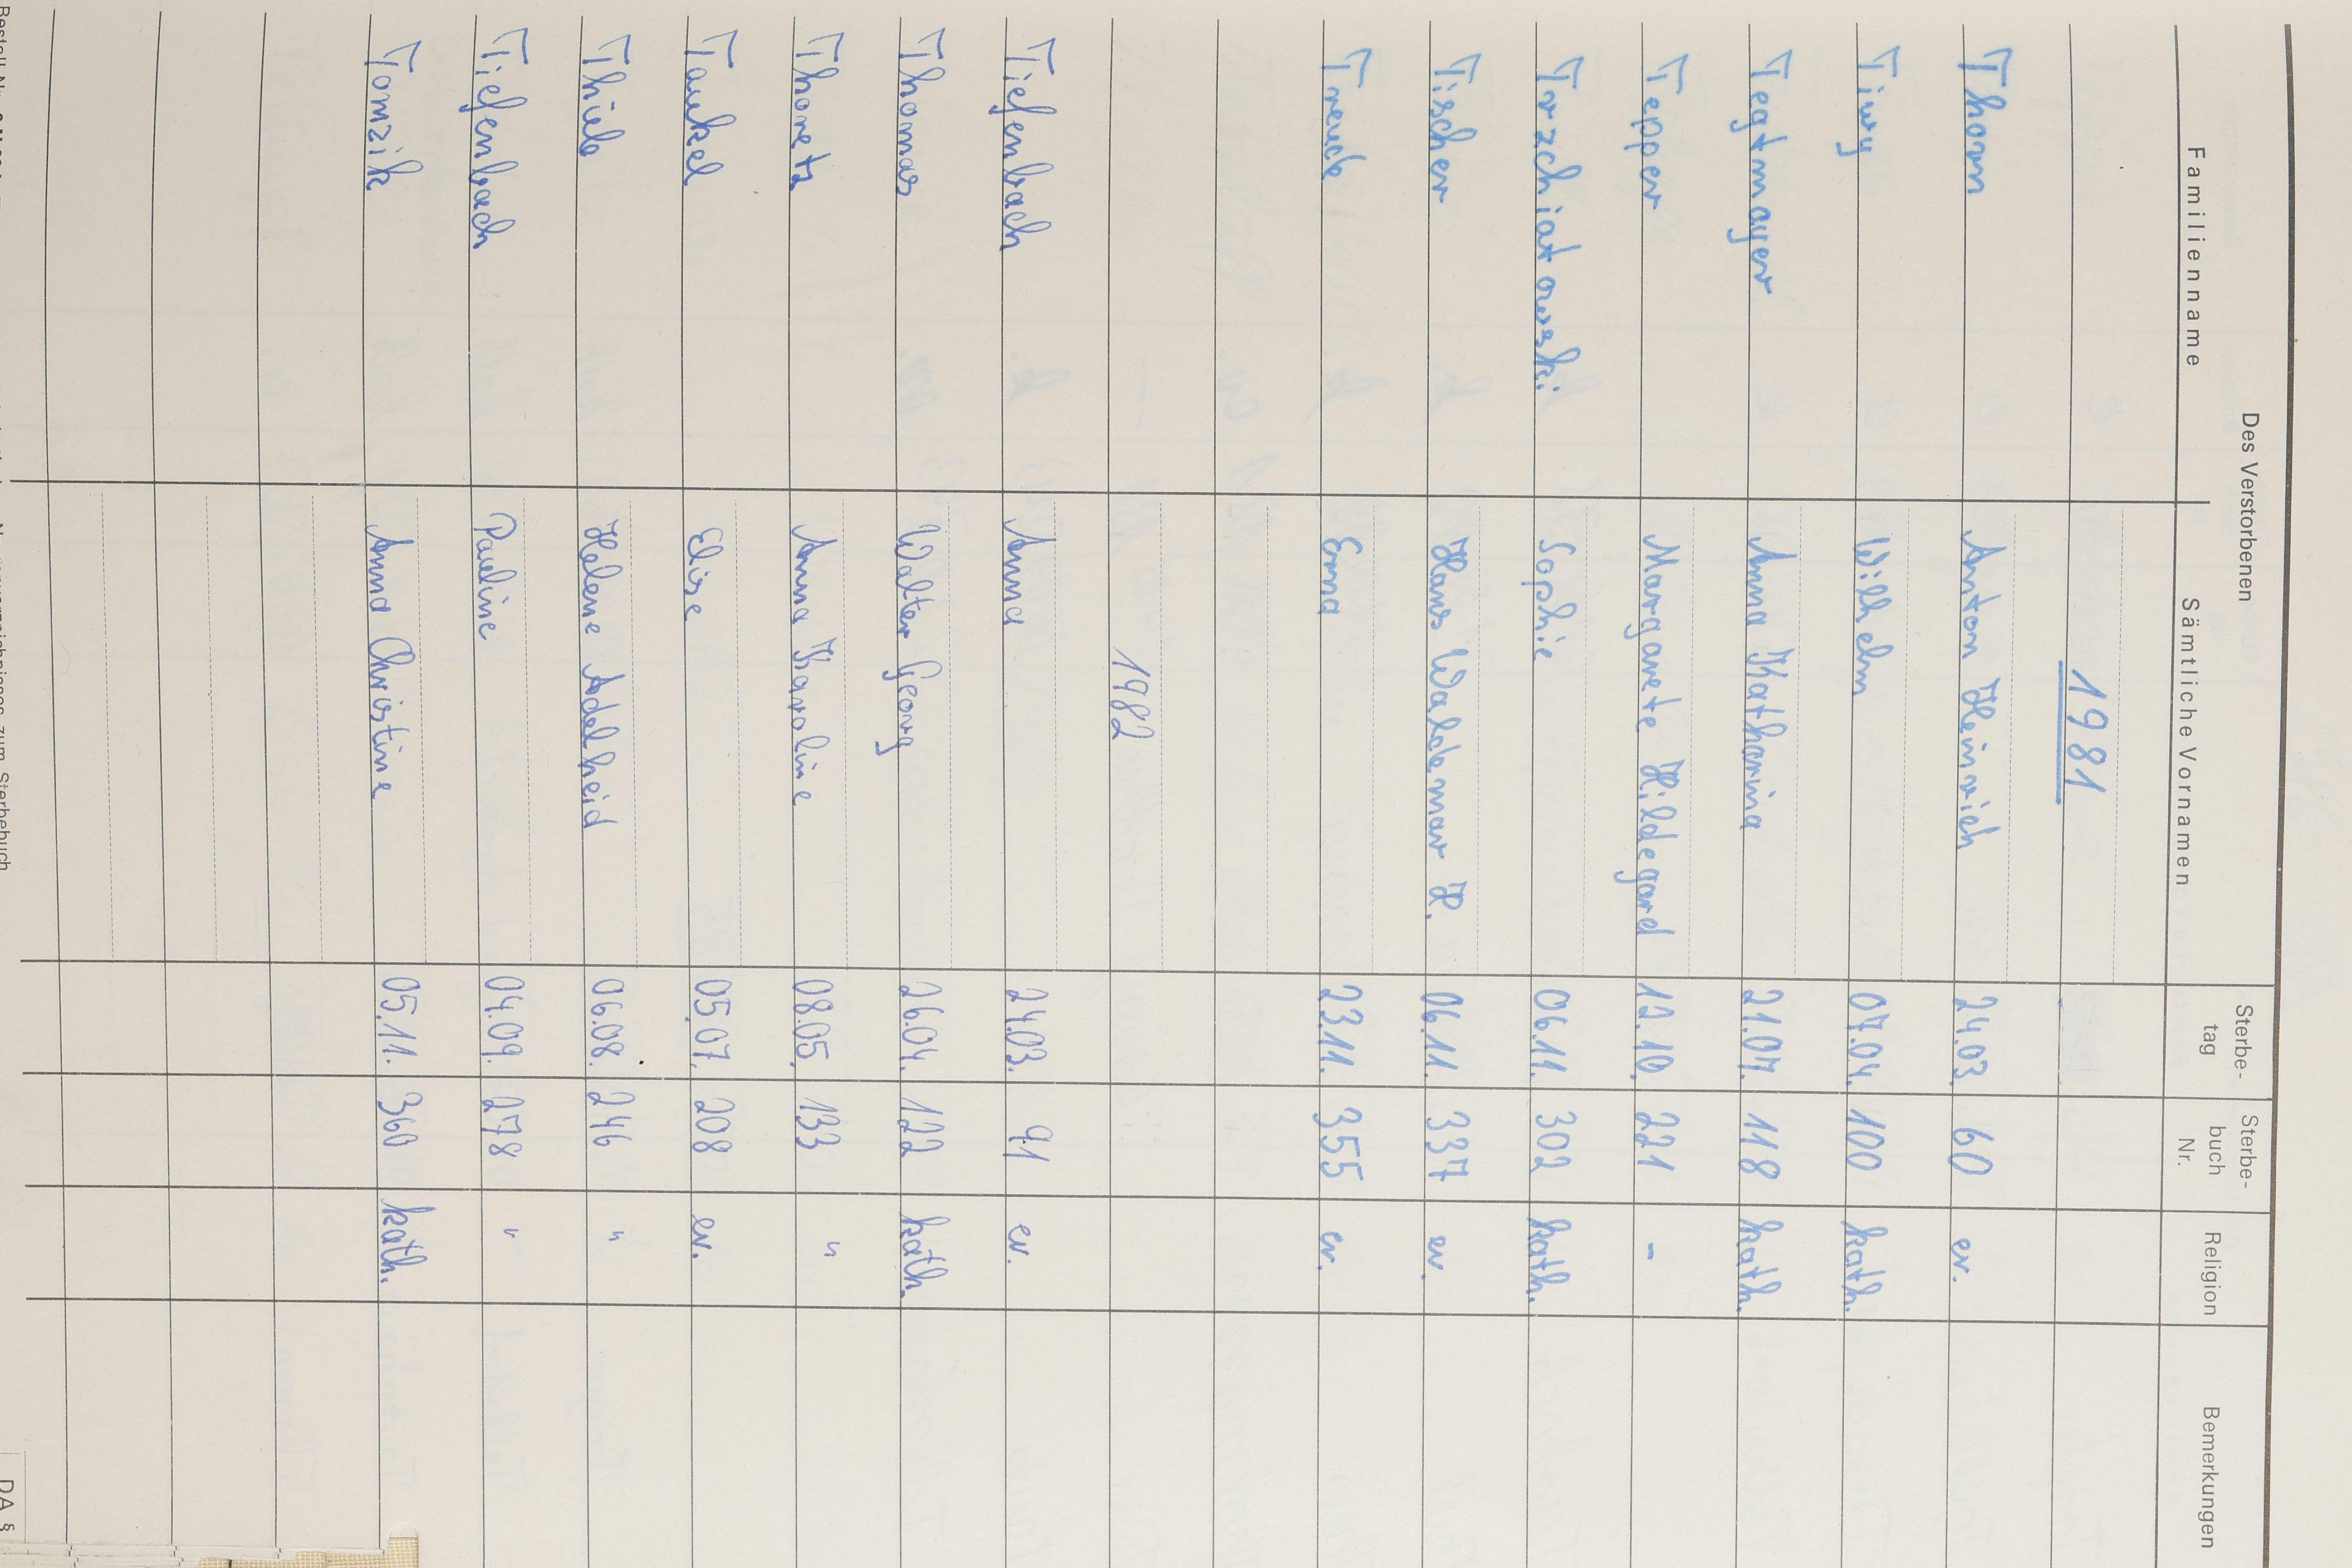 Des Verstorbenen
Familienname Sämtliche Vornamen Sterbe- tag Sterbe- buch Nr. Religion Bemerkungen
1981
Thom Anton Heinrich 24.03. 60 ev.
Tiwy Wilhelm 07.04. 100 kath.
Tegtmayer Anna Katharina 21.07. 118 kath.
Tepper Margarete Hildegard 12.10. 221 -
Trzchiatowski Sophie 06.11. 302 kath.
Tischer Hans Waldemar H. 06.11. 337 ev.
Treude Erna 23.11. 355 ev.
1982
Tiefenbach Anna 24.03. 91 ev.
Thomas Walter Georg 26.04. 122 kath.
Thoretz Anna Karoline 08.05. 133 "
Taukel Elise 05.07. 208 ev.
Thiele Helene Adelheid 06.08. 246 "
Tiefenbach Pauline 04.09. 278 "
Tomzik Anna Christine 05.11. 360 kath.
Namensverzeichnisses zum Sterbebuch
DA §